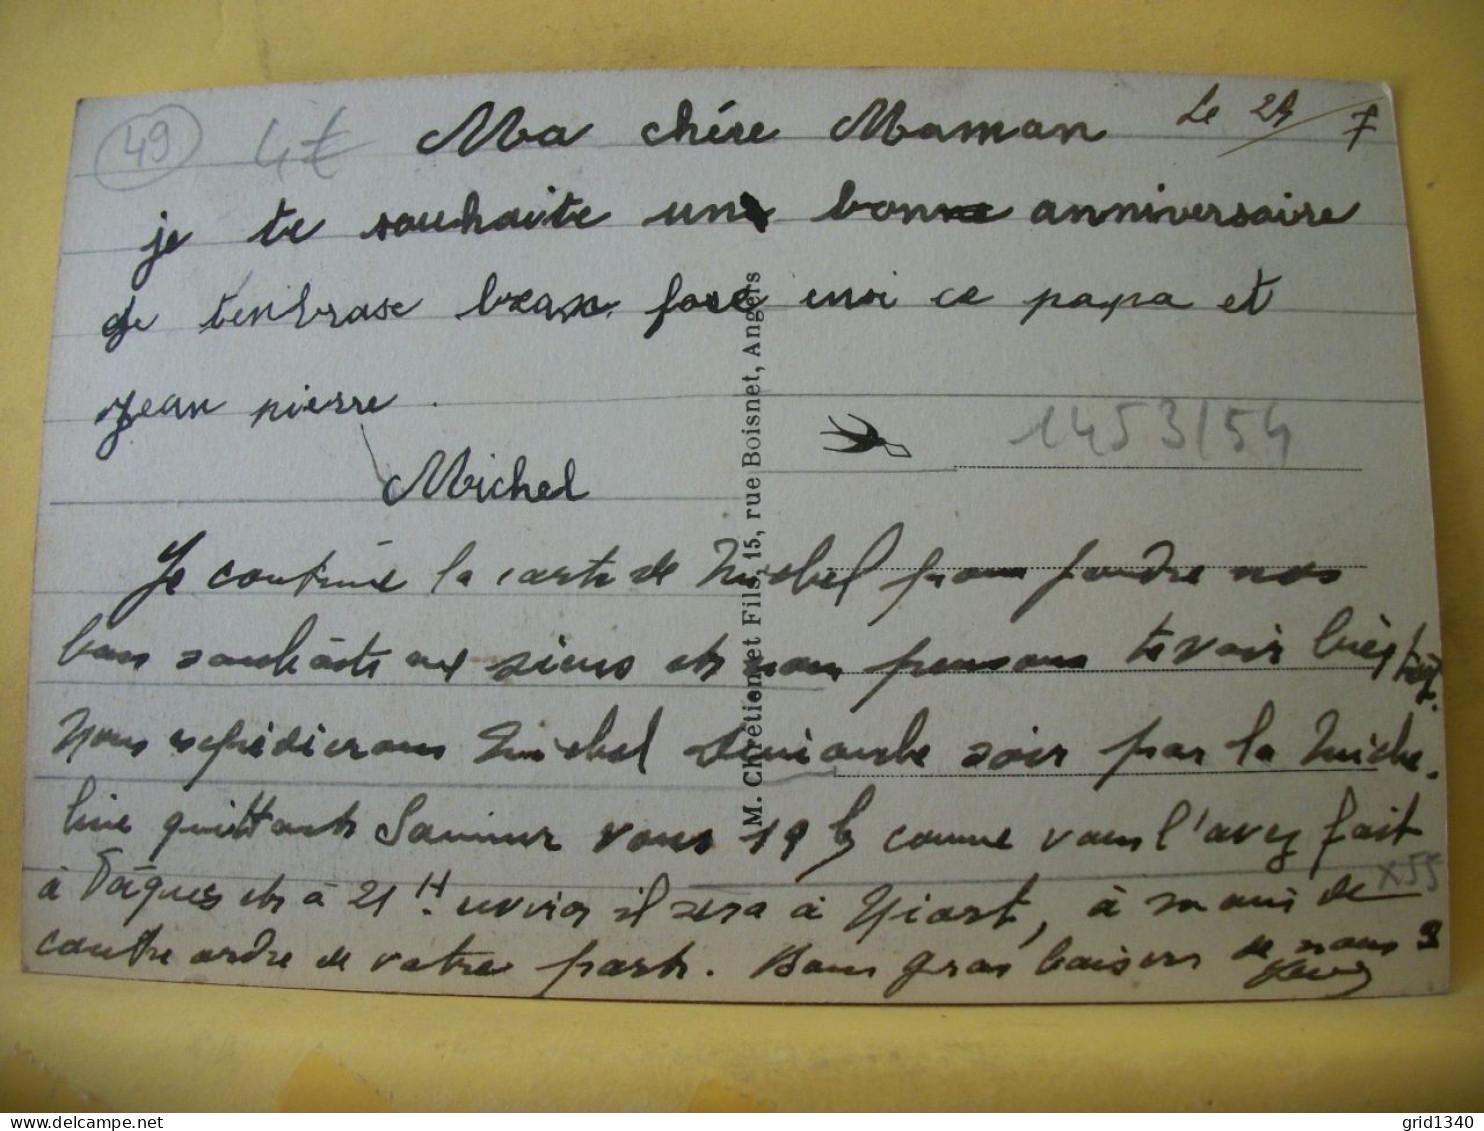 49
4€
Le 24/7
Ma chére Maman
je te souhaite un bon anniversaire
je tenbrase bean fore moi ce papa et
jean pierre.
Michel
1453/54
M. Chrétien et Fils, 15, rue Boisnet, Angers
Je continue la carte de Michel pour joindre nos
bons souhaits aux siens et nous pensons te voir bien tôt.
Nous expédierons Michel Dimanche soir par la Miche.
line quittant Saumur vers 19 h comme vous l'avez fait
à Pâques et à 21 H. environ il sera à Niort, à moins de
X55
contre ordre de votre part. Bons gros baisers de nous 3
grid1340